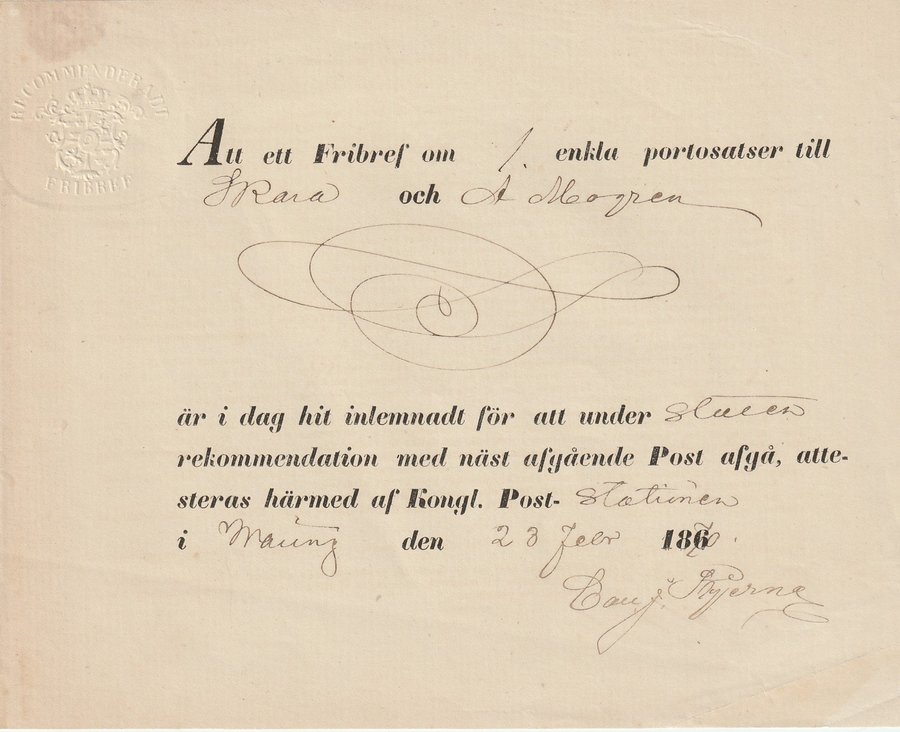 RECOMMENDERADT
FRIBREF
Att ett Fribref om 1. enkla portosatser till
Skara och A Mogren
är i dag hit inlemnadt för att under
rekommendation med näst afgående Post afgå, atte-
steras härmed af Kongl. Post- Stationen
i den 23 Febr 1870.